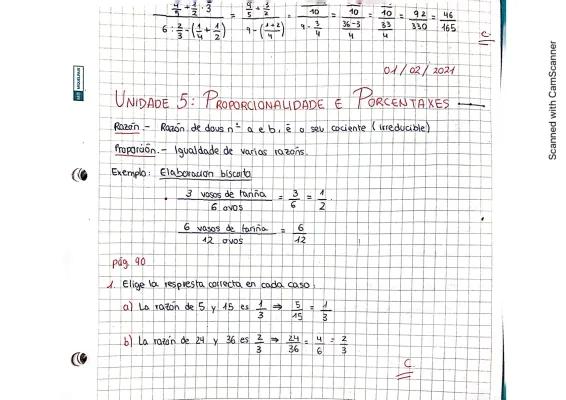 6 : 2/3 - (1/4 + 1/2) 9 - ((1+2)/4) 9 - 3/4 (36-3)/4 33/4 = 92/330 = 46/165
C
01/02/2021
UNIDADE 5: PROPORCIONALIDADE E PORCENTAXES
Razón.- Razón de dous nº a e b, é o seu cociente (irreducible)
Proporción.- Igualdade de varias razóns.
Exemplo: Elaboración biscoito
3 vasos de fariña / 6 ovos = 3/6 = 1/2
6 vasos de fariña / 12 ovos = 6/12
pág 90
1. Elige la respresta correcta en cada caso:
a) La razón de 5 y 15 es 1/3 ⇒ 5/15 = 1/3
b) La razón de 24 y 36 es 2/3 ⇒ 24/36 = 4/6 = 2/3
C
Scanned with CamScanner